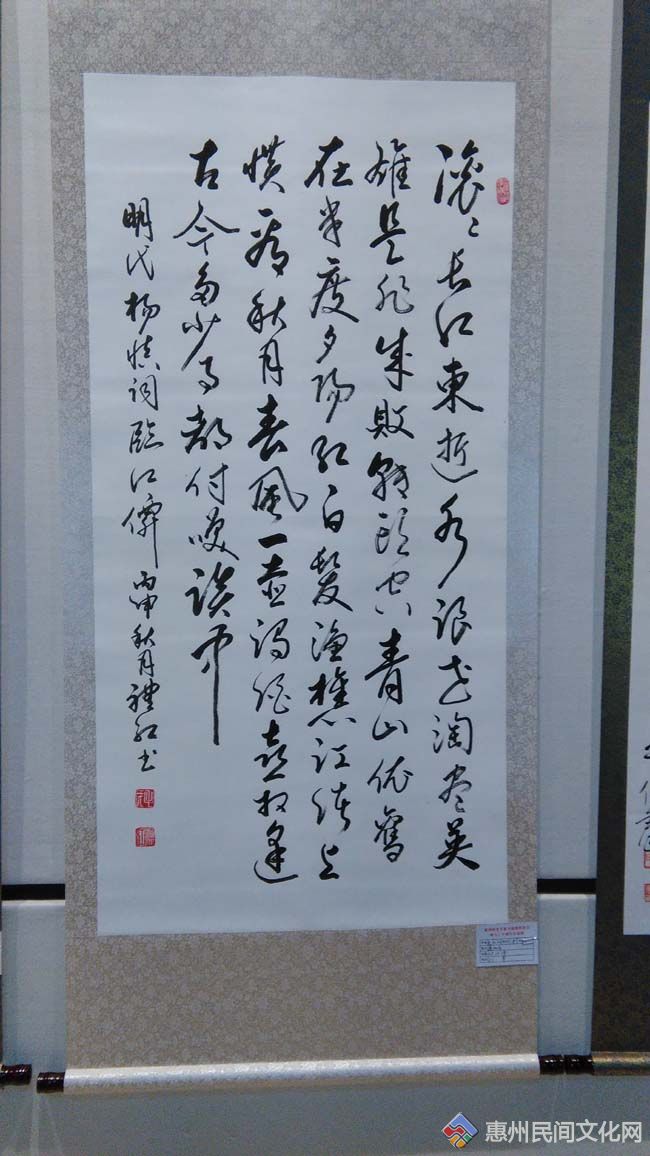 滚々长江東逝水浪花淘尽英
雄是非成敗转头空青山依舊
在幾度夕陽红白髮渔樵江渚上
惯看秋月春風一壺濁酒喜相逢
古今多少事都付笑談中
明代杨慎词臨江僊 丙申秋月禮红书
惠州民间文化网